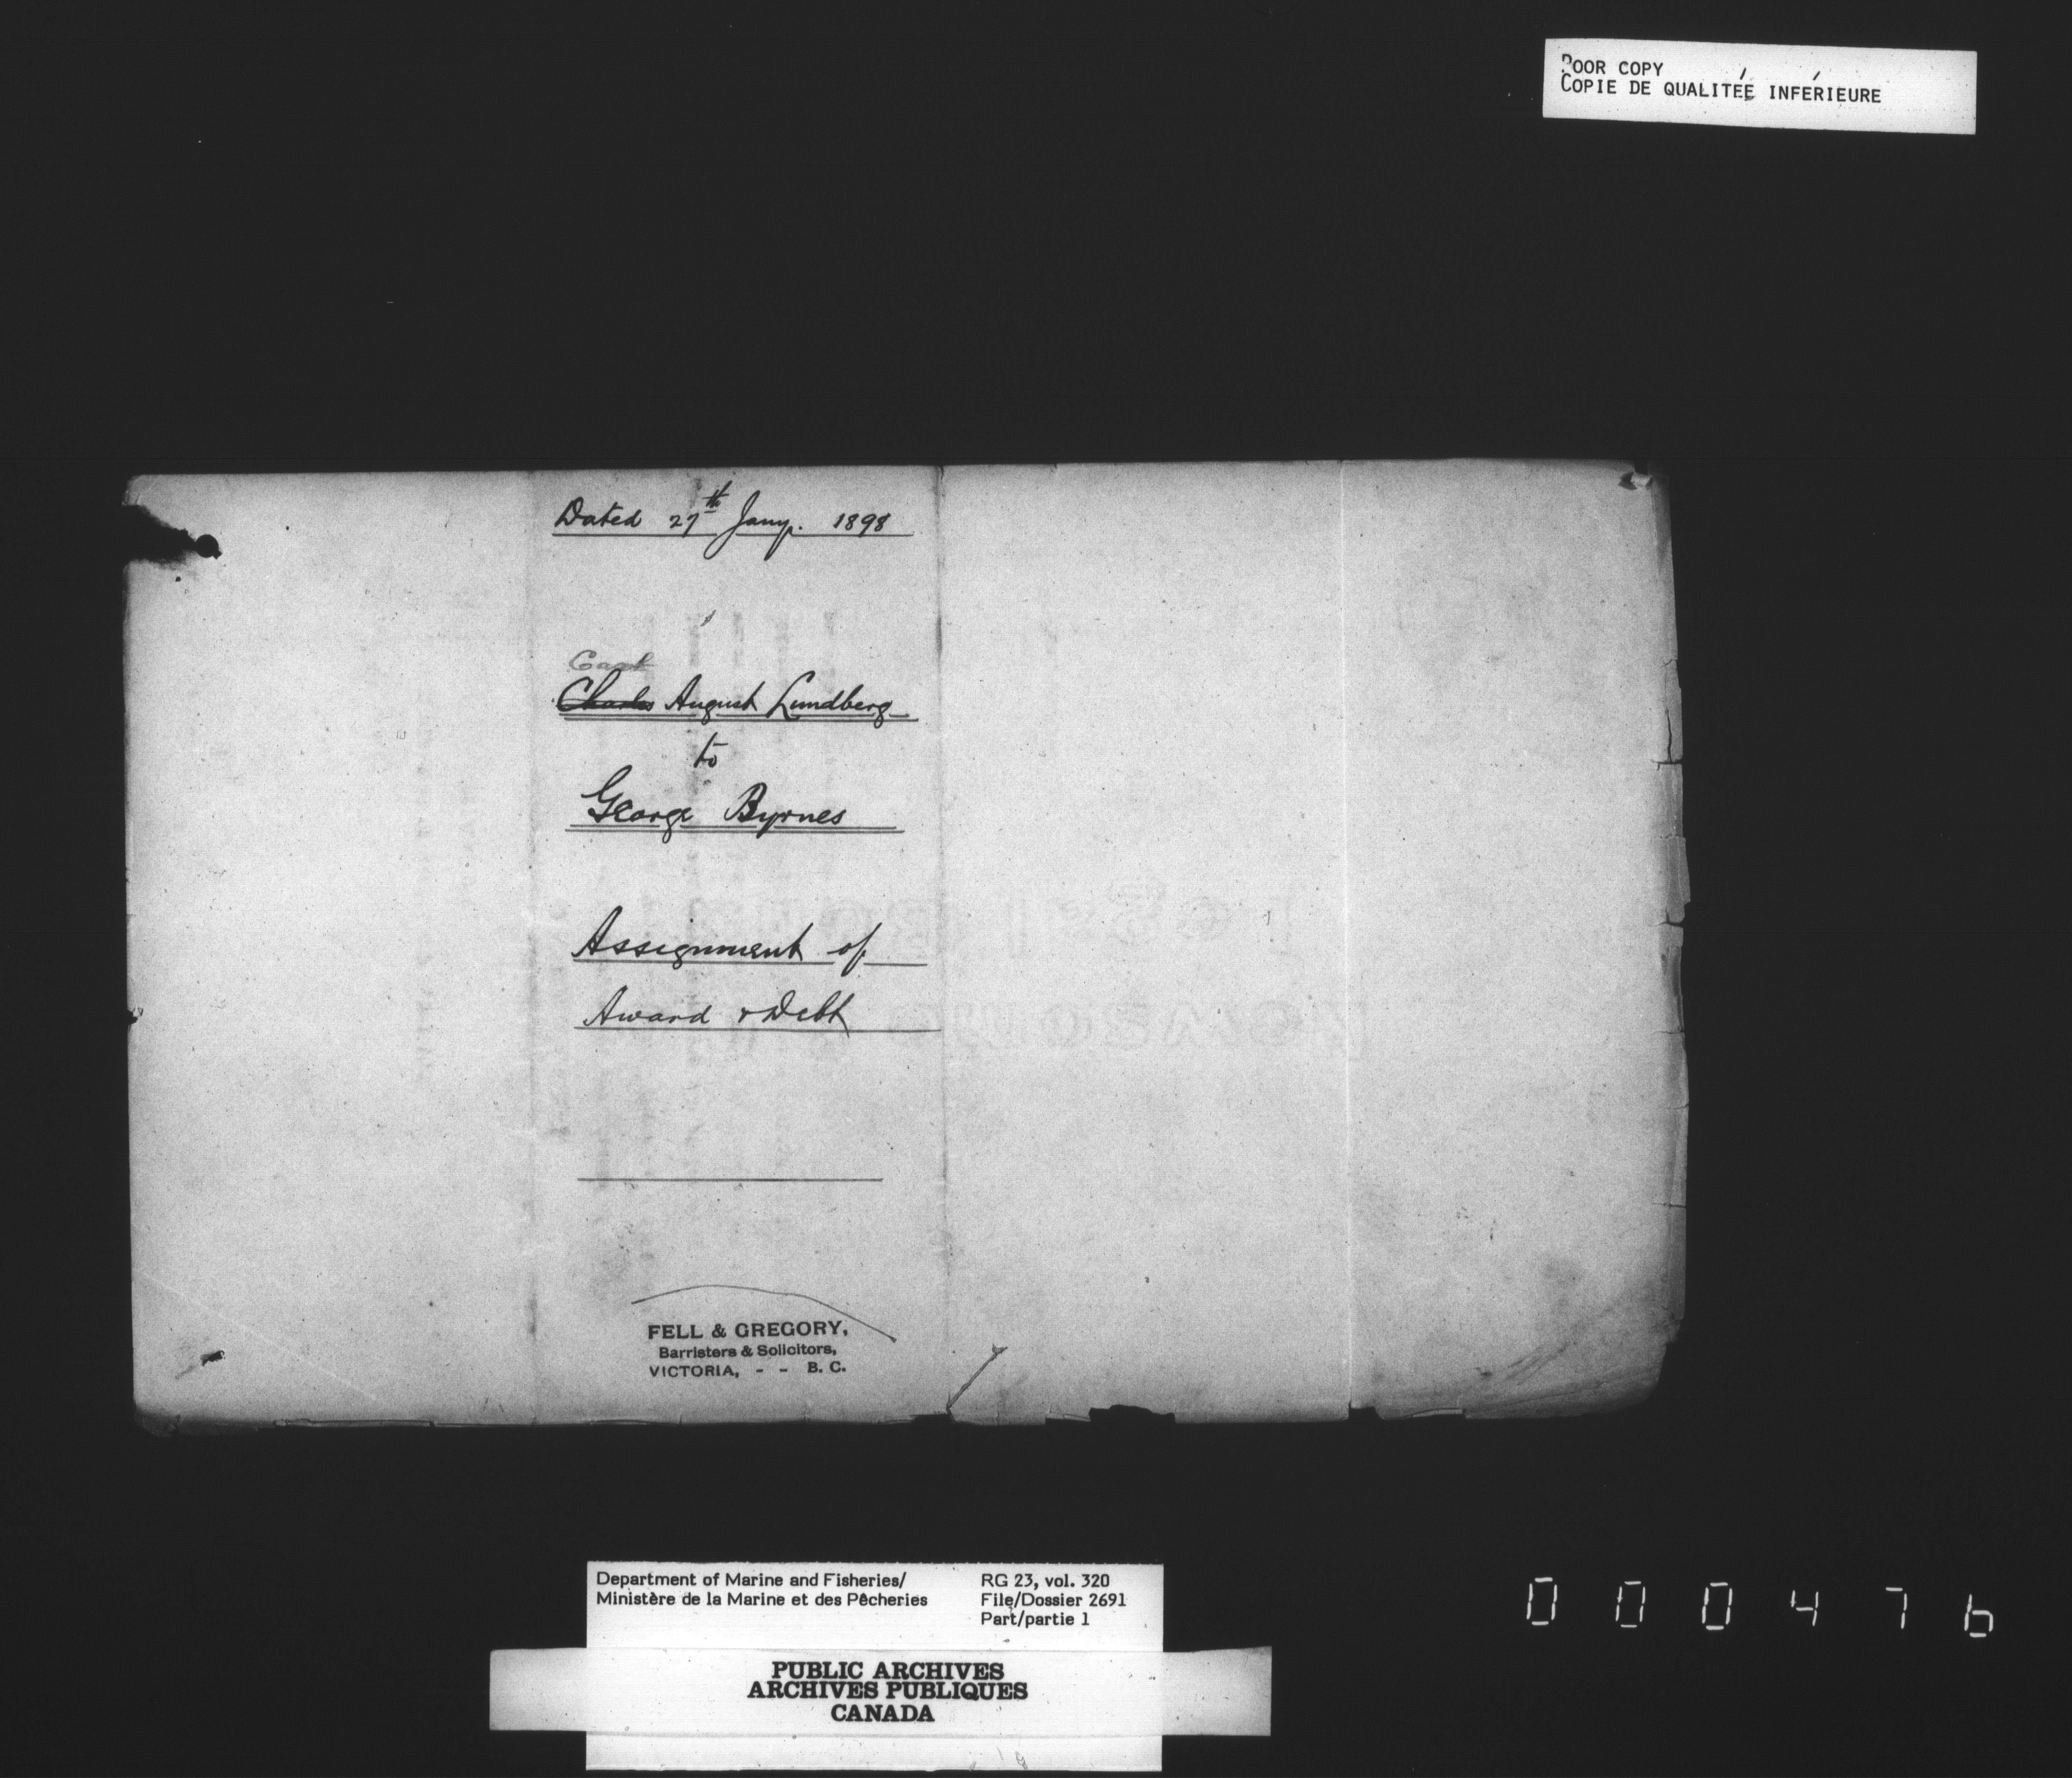 POOR COPY
COPIE DE QUALITÉE INFÉRIEURE
Dated 27th Jany. 1898
Charles August Lundberg
to
George Byrnes
Assignment of
Award & Debt
FELL & GREGORY,
Barristers & Solicitors,
VICTORIA, - - B. C.
Department of Marine and Fisheries/
Ministère de la Marine et des Pêcheries
RG 23, vol. 320
File/Dossier 2691
Part/partie 1
PUBLIC ARCHIVES
ARCHIVES PUBLIQUES
CANADA
000476